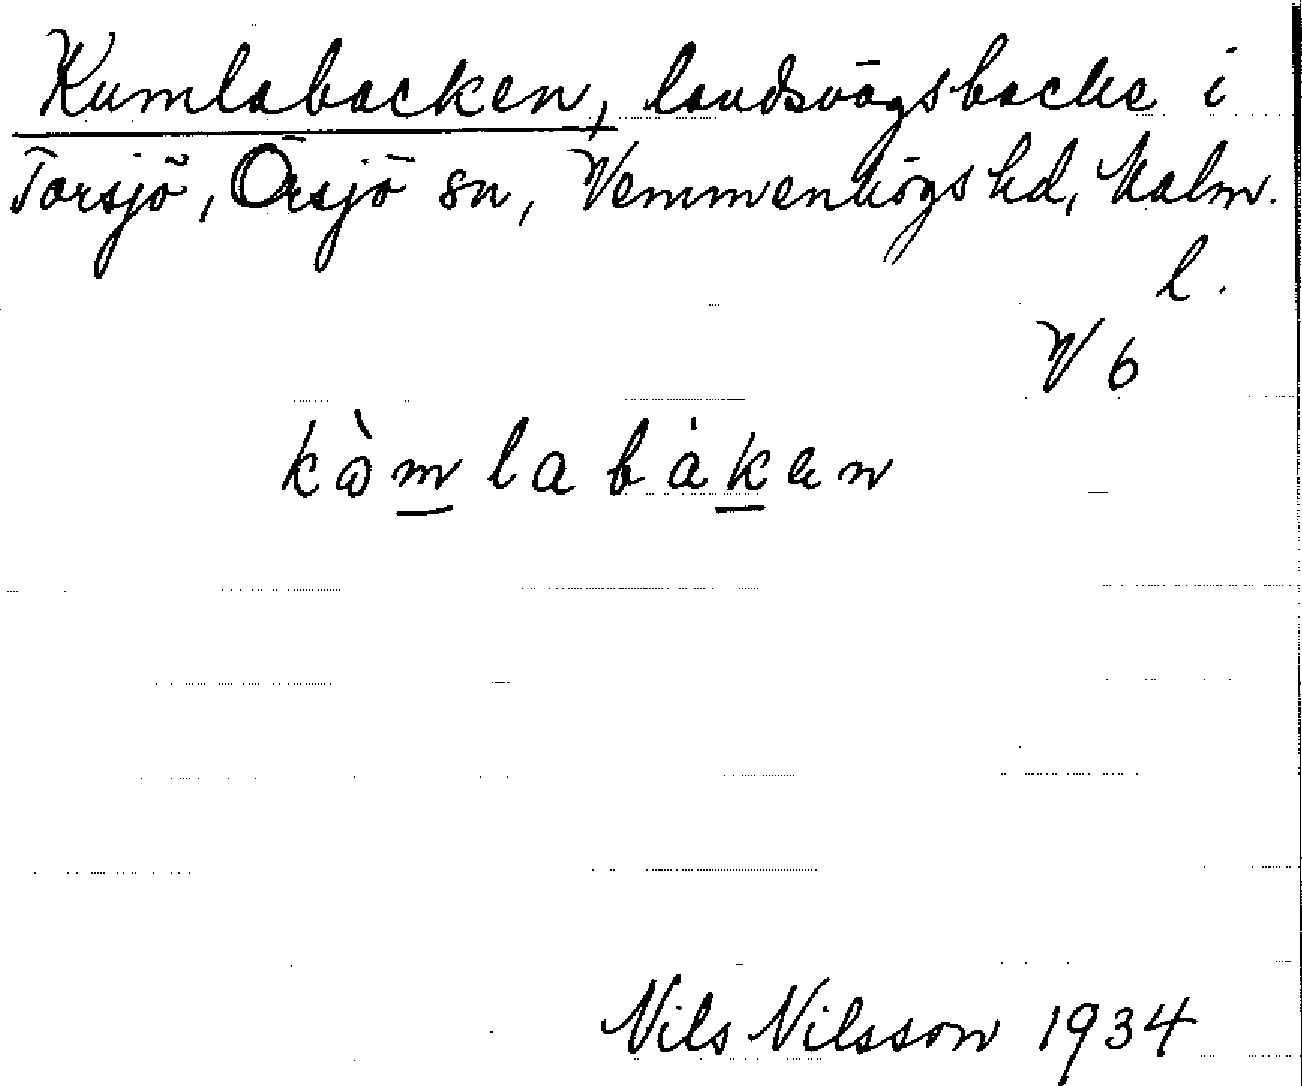 Kumlabacken, landsvägsbacke i
Torsjö, Örsjö sn, Vemmenhögs hd, Malm.
l.
V 6
kòmlabàken
Nils Nilsson 1934